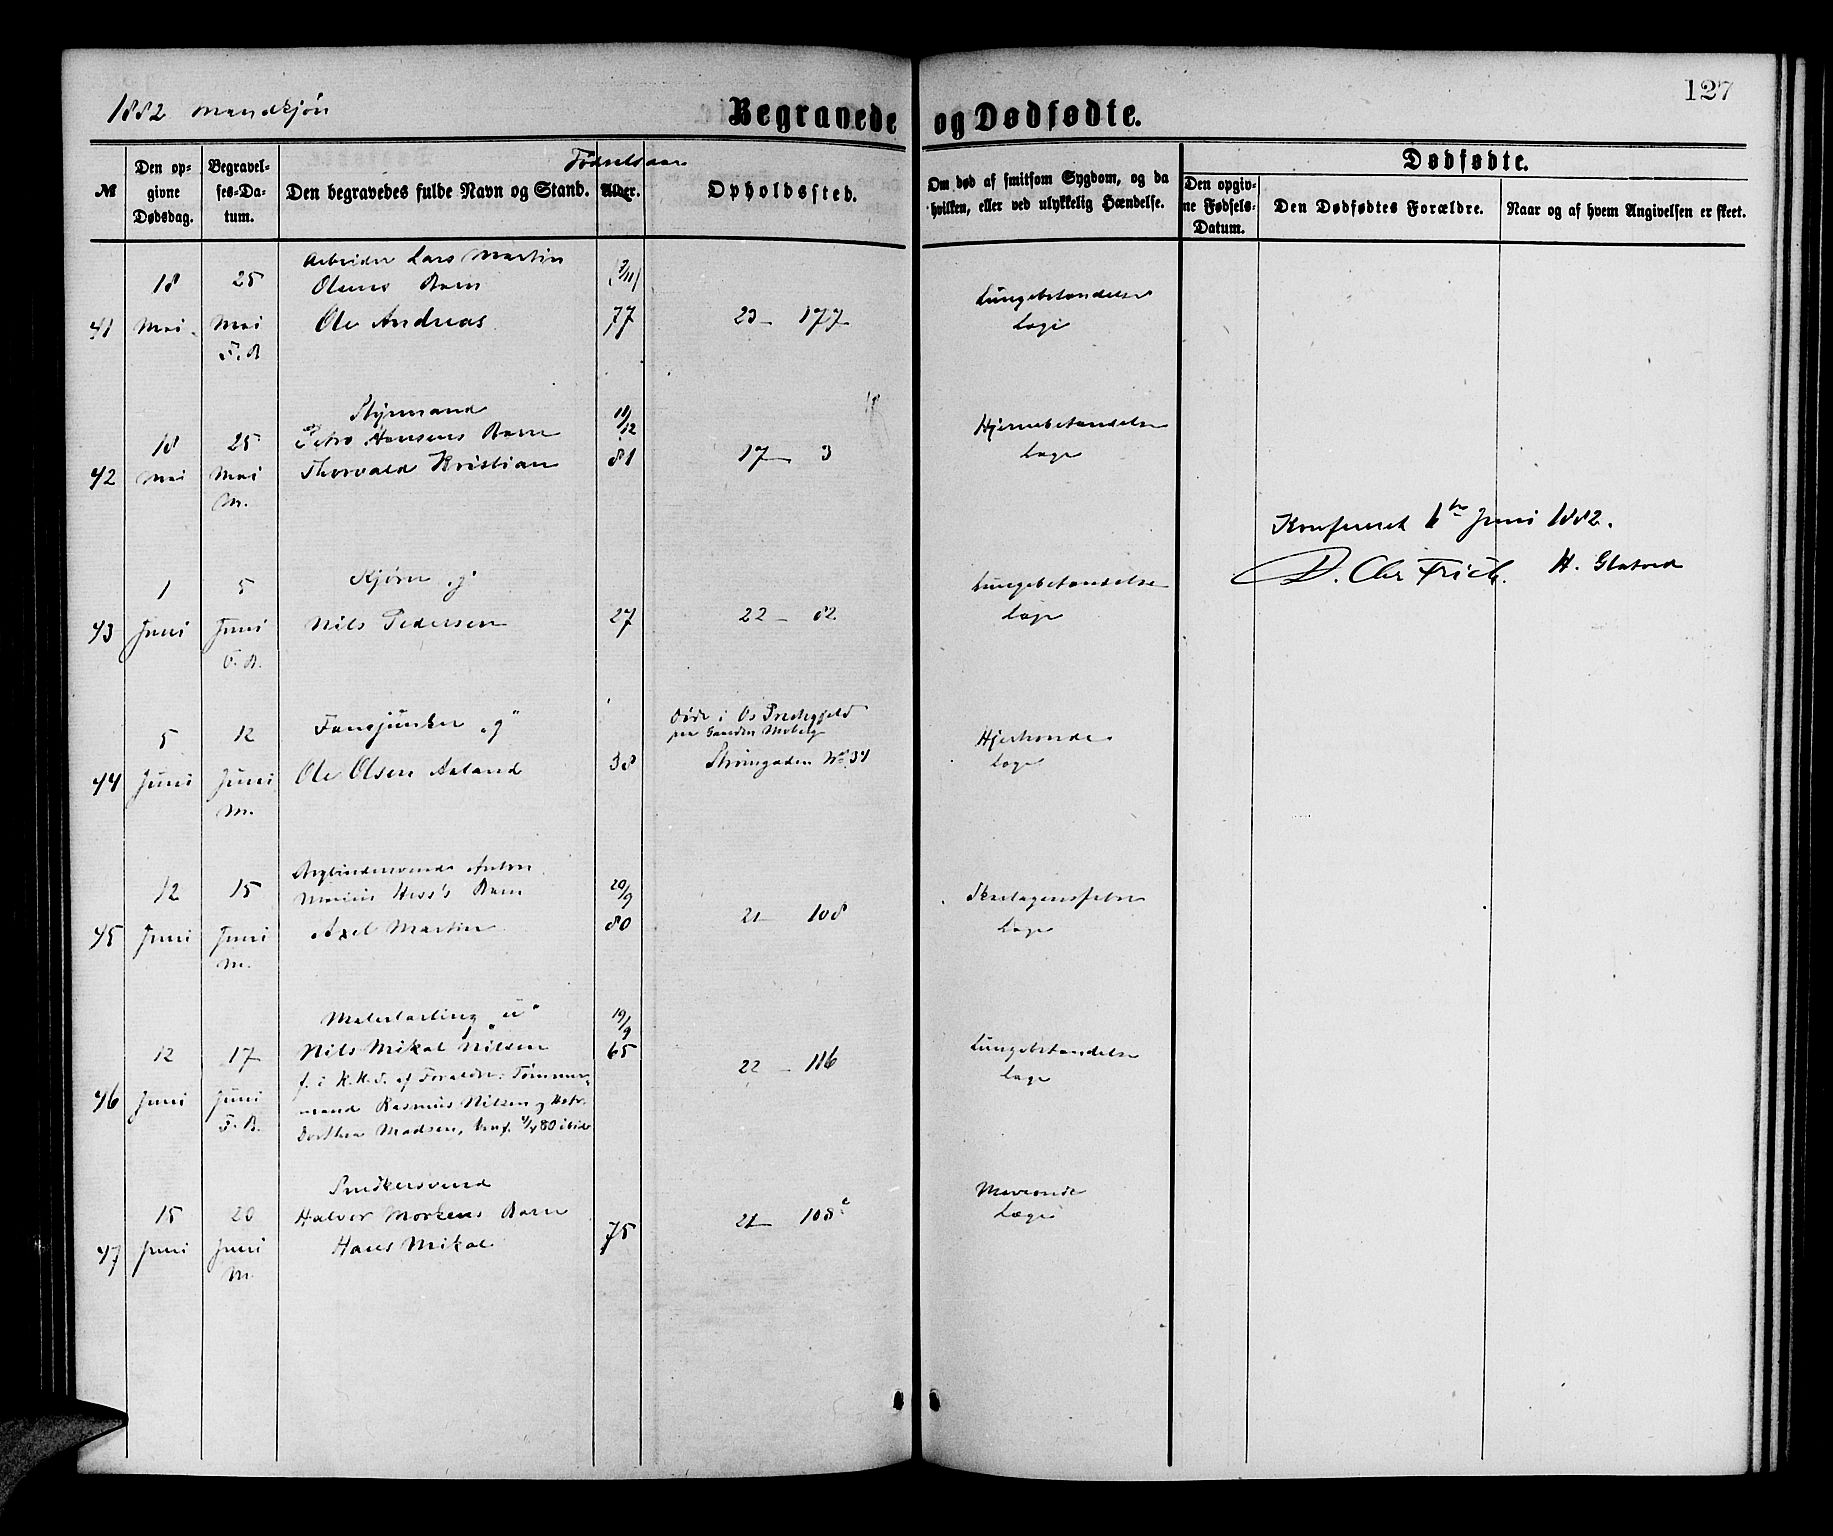 1882 Mandkjøn
Begravede og Dødfødte.
127
№
Den opgivne Dødsdag.
Begravelses-Datum.
Den begravedes fulde Navn og Stand.
Fødselsaar
Alder.
Opholdssted.
Om død af smitsom Sygdom, og da hvilken, eller ved ulykkelig Hændelse.
Dødfødte.
Den opgivne Fødsels-Datum.
Den Dødfødtes Forældre.
Naar og af hvem Angivelsen er skeet.
Arbeider Lars Martin
18 25 Olsens Barn
41 Mai Mai Ole Andreas 77 23 – 177
Lungebetændelse
Læge
F. B.
Styrmand 11/12
18 25 Petro Hansens Barn
42 Mai Mai Thorvald Kristian 81 17 – 3
Hjernebetændelse
Læge
M.
Konfereret 1ste Juni 1882.
1 5 Kjører „g“
43 Juni Juni Nils Pedersen 27 22 – 82
Lungebetændelse
Læge
F. B.
5 12 Fansjunker „g“
Døde i Os Præstegjeld
paa Gaarden Moberg
44 Juni Juni Ole Olsen Aaland 38 Strømgaden No 34
Hjerteonde
Læge
M.
12 15 Marius Hess's Barn 20/9
45 Juni Juni Axel Martin 80 21 – 108
Skarlagensfeber
Læge
M.
Malerlærling „u“ 19/9
12 17 Nils Mikal Nilsen 65 22 – 116
f. i K.K.S. af Forældre: Tømmer-
46 Juni Juni mand Rasmus Nilsen og Hstr.
F. B. Dorthea Madsen, konf. 4/4 80 ibid
Lungebetændelse
Læge
Snedkersvend
15 20 Halvor Morkens Barn
47 Juni Juni Hans Mikal 75 21 – 108
Maveonde
Læge
M.